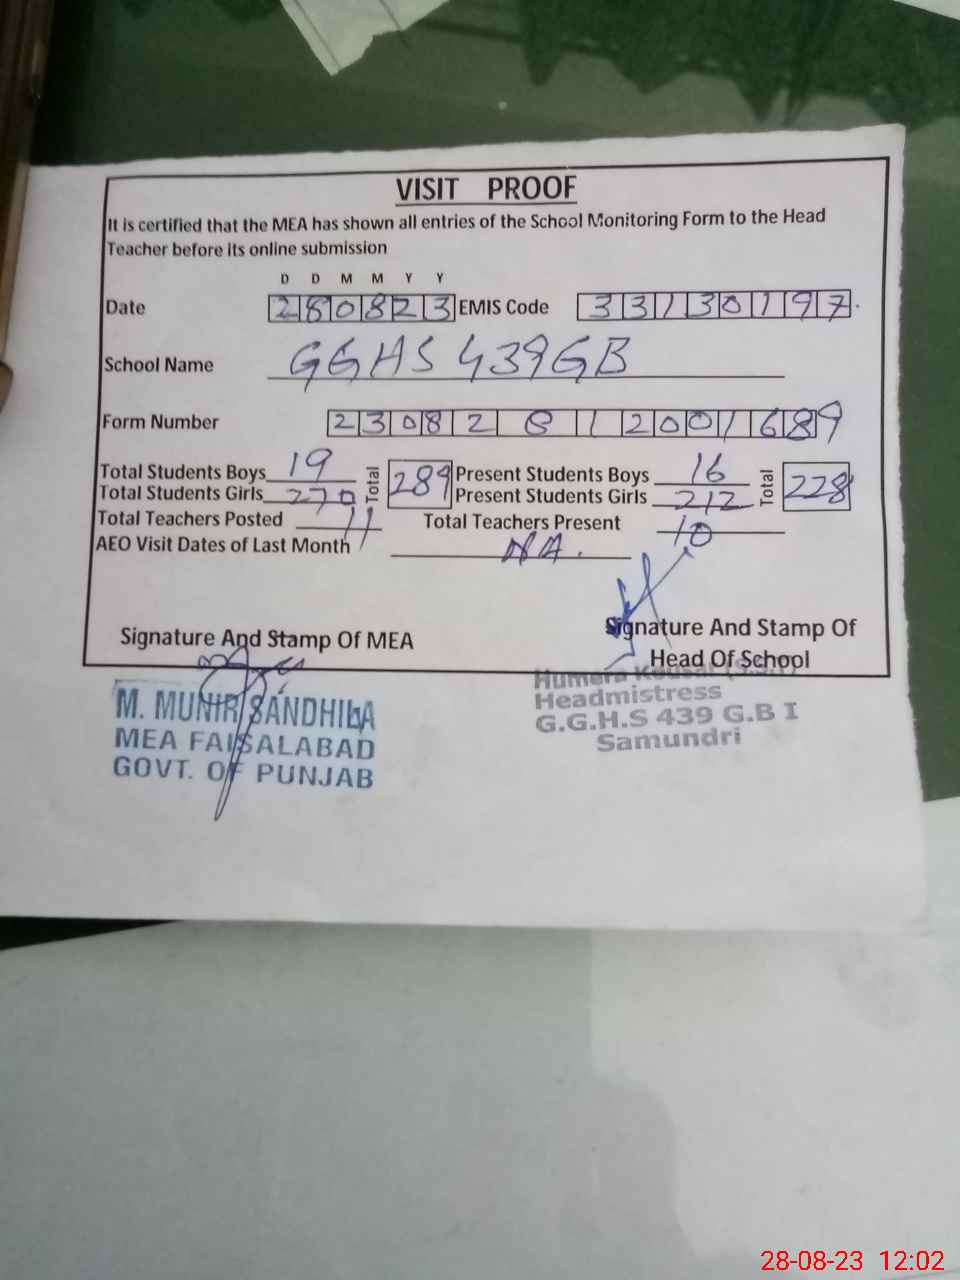 VISIT PROOF
It is certified that the MEA has shown all entries of the School Monitoring Form to the Head
Teacher before its online submission
D D M M Y Y
Date 280823 EMIS Code 33130197
School Name GGHS 439GB
Form Number 230828 1 2001689
Total Students Boys 19 Total 289 Present Students Boys 16 Total 228
Total Students Girls 270 Present Students Girls 212
Total Teachers Posted 11 Total Teachers Present 10
AEO Visit Dates of Last Month NA.
Signature And Stamp Of MEA Signature And Stamp Of
Head Of School
M. MUNIR SANDHILA
MEA FAISALABAD
GOVT. OF PUNJAB
Humera Kousar (S.S.T)
Headmistress
G.G.H.S 439 G.B I
Samundri
28-08-23 12:02